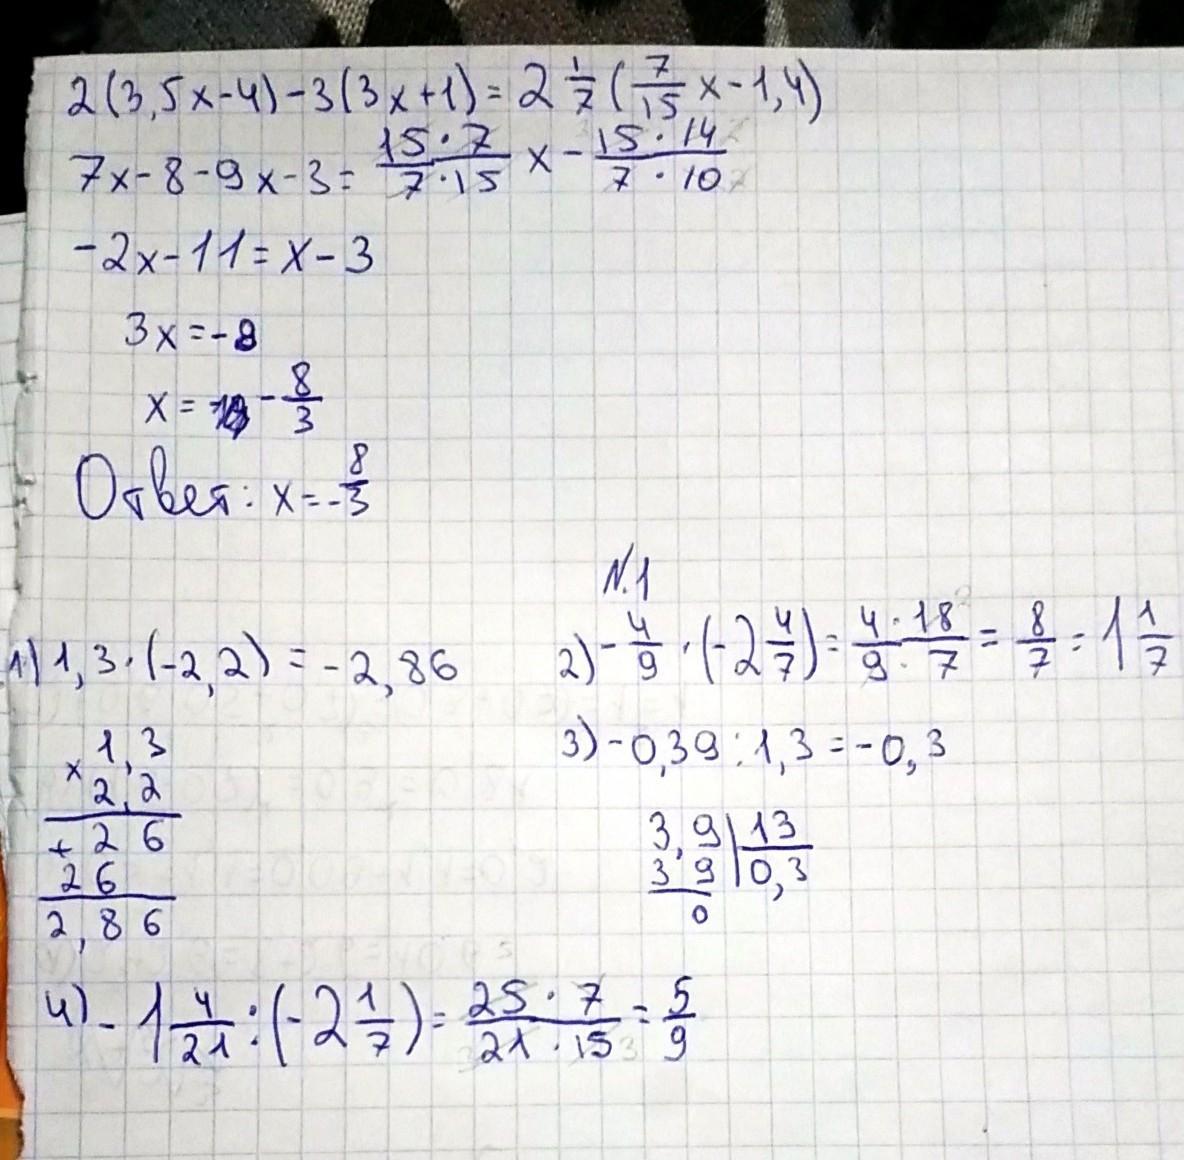 2(3,5x-4)-3(3x+1)=2 1/7 (7/15 x-1,4)
7x-8-9x-3= 15·7/7·15 x - 15·14/7·10
-2x-11=x-3
3x=-8
x= -8/3
Ответ: x=-8/3
N.1
1) 1,3·(-2,2)=-2,86
2) -4/9·(-2 4/7)= 4·18/9·7 = 8/7 = 1 1/7
3) -0,39:1,3=-0,3
× 1,3
2,2
+ 2 6
2 6
2,8 6
3,9 | 13
3 9 | 0,3
0
4) -1 4/21:(-2 1/7)= 25·7/21·15 = 5/9